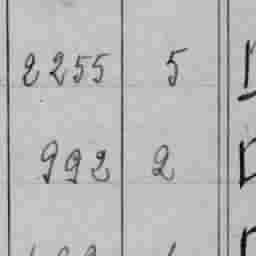 2255 5
992 2